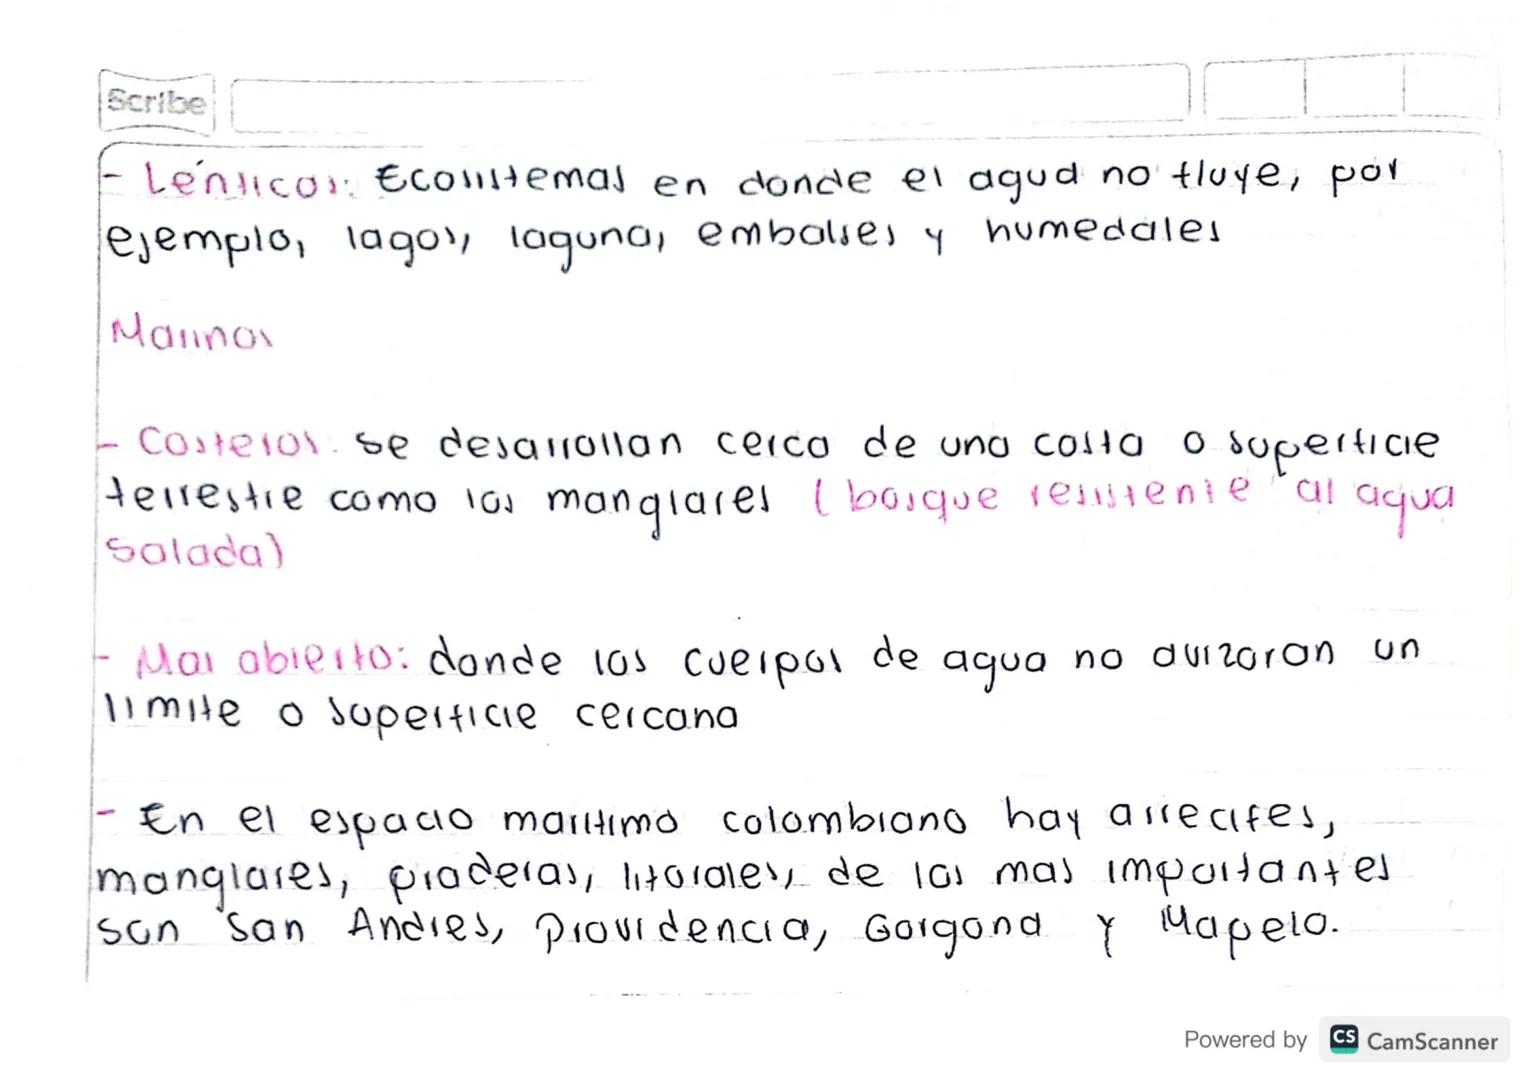 Scribe
- Lénticos: Ecosistemas en donde el agua no fluye, por
ejemplo, lagos, laguna, embalses y humedales
Marinos
- Costeros: se desarrollan cerca de una costa o superficie
terrestre como los manglares (bosque resistente al agua
salada)
- Mar abierto: donde los cuerpos de agua no avizoran un
limite o superficie cercana
- En el espacio maritimo colombiano hay arrecifes,
manglares, praderas, litorales, de los mas importantes
son San Andres, Providencia, Gorgona y Mapelo.
Powered by CS CamScanner